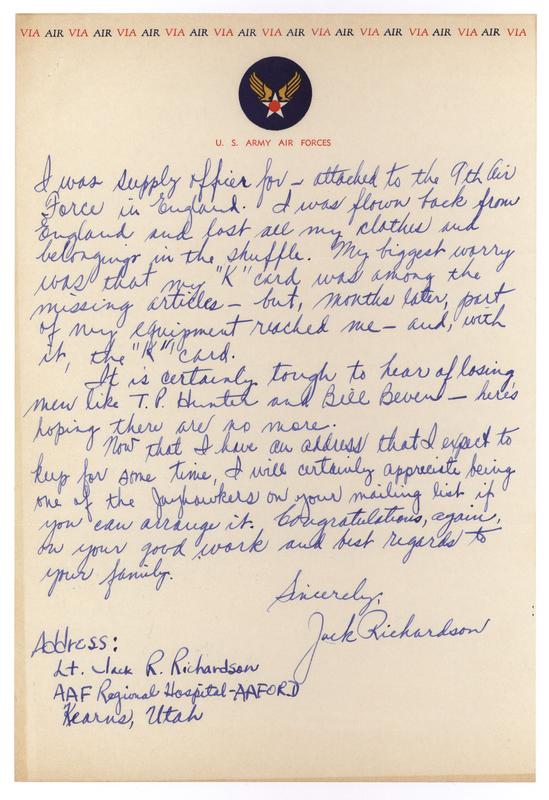 VIA AIR VIA AIR VIA AIR VIA AIR VIA AIR VIA AIR VIA AIR VIA AIR VIA AIR VIA AIR VIA
U. S. ARMY AIR FORCES
I was supply officer for – attached to the 9th Air
Force in England. I was flown back from
England and lost all my clothes and
belongings in the shuffle. My biggest worry
was that my "K" card was among the
missing articles – but, months later, part
of my equipment reached me – and, with
it, the "K" card.
It is certainly tough to hear of losing
men like T.P. Hunter and Bill Beven – here's
hoping there are no more.
Now that I have an address that I expect to
keep for some time, I will certainly appreciate being
one of the Jayhawkers on your mailing list if
you can arrange it. Congratulations, again,
on your good work and best regards to
your family.
Sincerely,
Jack Richardson
Address:
Lt. Jack R. Richardson
AAF Regional Hospital-AAFORD
Kearns, Utah